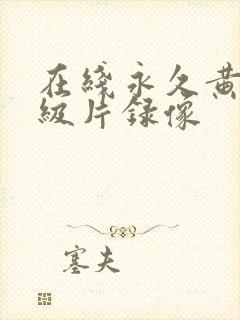 在綫永久黄
級片録像
塞夫